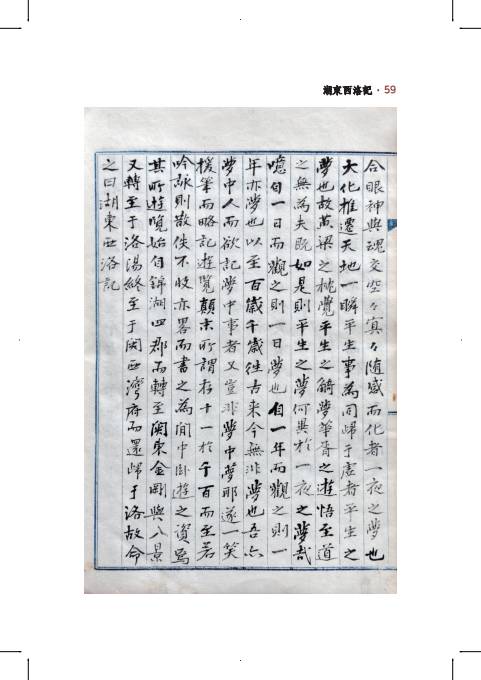 湖東西洛記 · 59
合眼神與魂交空々寞々隨感而化者一夜之夢也
大化推遷天地一瞬平生事為同歸于虛者平生之
夢也故黃梁之枕覺平生之觭夢華胥之遊悟至道
之無為夫旣如是則平生之夢何異於一夜之夢哉
噫自一日而觀之則一日夢也自一年而觀之則一
年亦夢也以至百歲千歲徃古来今無非夢也吾亦
夢中人而欲記夢中事者又豈非夢中夢耶遂一笑
援筆而略記遊覽顛末所謂存十一於千百而至若
吟詠則散佚不收亦畧而書之為閒中卧遊之資焉
其所遊覽始自錦湖四郡而轉至関東金剛與八景
又轉至于洛陽終至于関西灣府而還歸于洛故命
之曰湖東西洛記